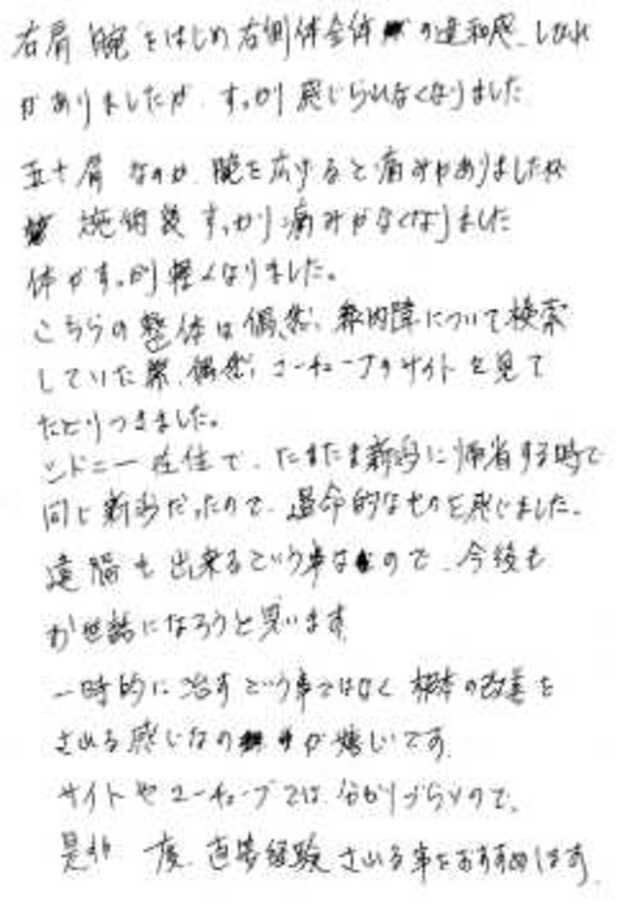 右肩 腕をはじめ右側体全体の違和感、しびれ
がありましたが、すっかり感じられなくなりました
五十肩なのか、腕を広げると痛みがありましたが
施術後すっかり痛みがなくなりました
体がすっかり軽くなりました。
こちらの整体は偶然、緑内障について検索
していた際、偶然、ユーチューブのサイトを見て
たどりつきました。
シドニー在住で、たまたま新潟に帰省する時で
同じ新潟だったので、運命的なものを感じました。
遠隔も出来るという事なので、今後も
お世話になろうと思います。
一時的に治すという事ではなく根本の改善を
される感じなの が嬉しいです。
サイトやユーチューブでは分かりづらいので、
是非一度、直接経験される事をおすすめします。